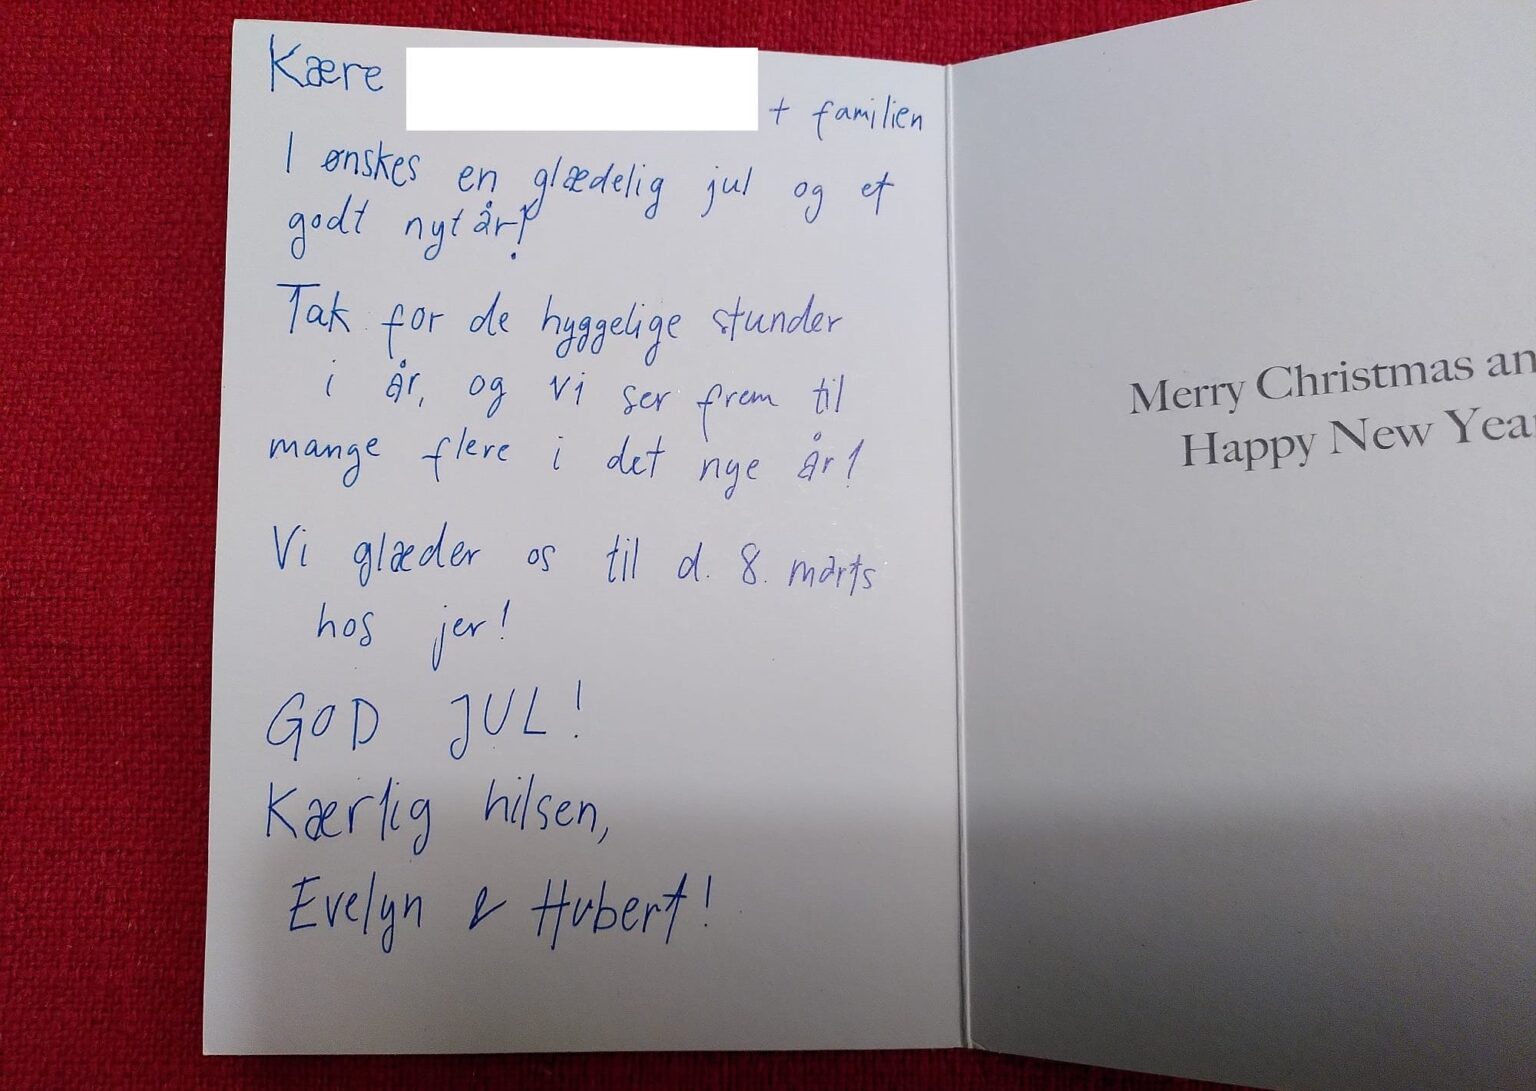 Kære
+ familien
I ønskes en glædelig jul og et
godt nytår!
Tak for de hyggelige stunder
i år, og vi ser frem til
mange flere i det nye år!
Vi glæder os til d. 8. marts
hos jer!
GOD JUL!
Kærlig hilsen,
Evelyn & Hubert!
Merry Christmas an
Happy New Yea